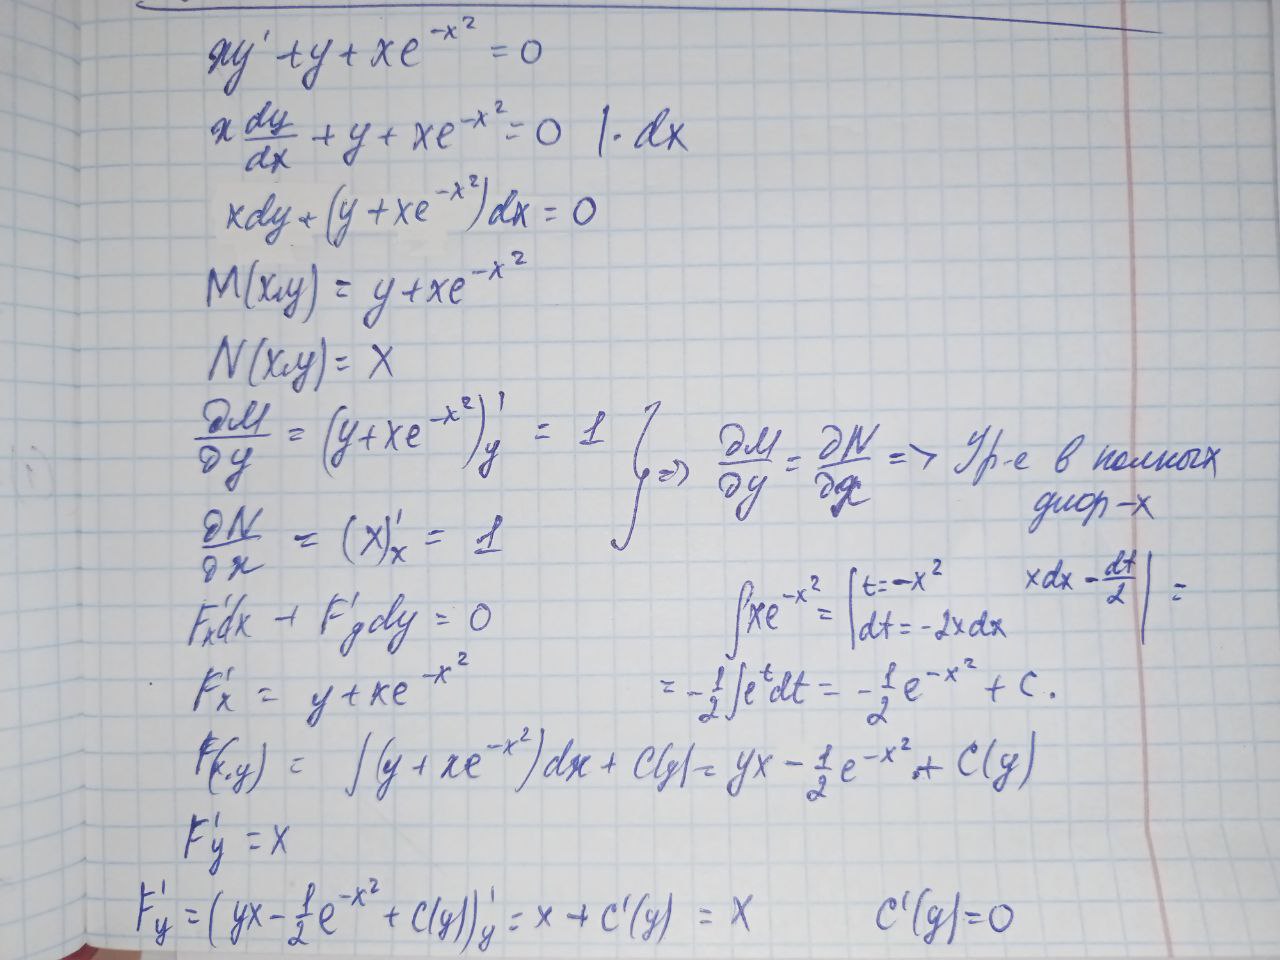 xy' + y + xe^{-x^2} = 0
x dy/dx + y + xe^{-x^2} = 0 | · dx
xdy + (y + xe^{-x^2})dx = 0
M(x,y) = y + xe^{-x^2}
N(x,y) = x
∂M/∂y = (y + xe^{-x^2})'_y = 1 } => ∂M/∂y = ∂N/∂x => Ур-е в полных
диф-х
∂N/∂x = (x)'_x = 1
∫xe^{-x^2} = | t = -x^2 xdx - dt/2 | =
dt = -2xdx
F'_x dx + F'_y dy = 0
F'_x = y + xe^{-x^2}
= -1/2 ∫e^t dt = -1/2 e^{-x^2} + C.
F(x,y) = ∫(y + xe^{-x^2})dx + C(y) = yx - 1/2 e^{-x^2} + C(y)
F'_y = x
F'_y = (yx - 1/2 e^{-x^2} + C(y))'_y = x + C'(y) = x C'(y) = 0